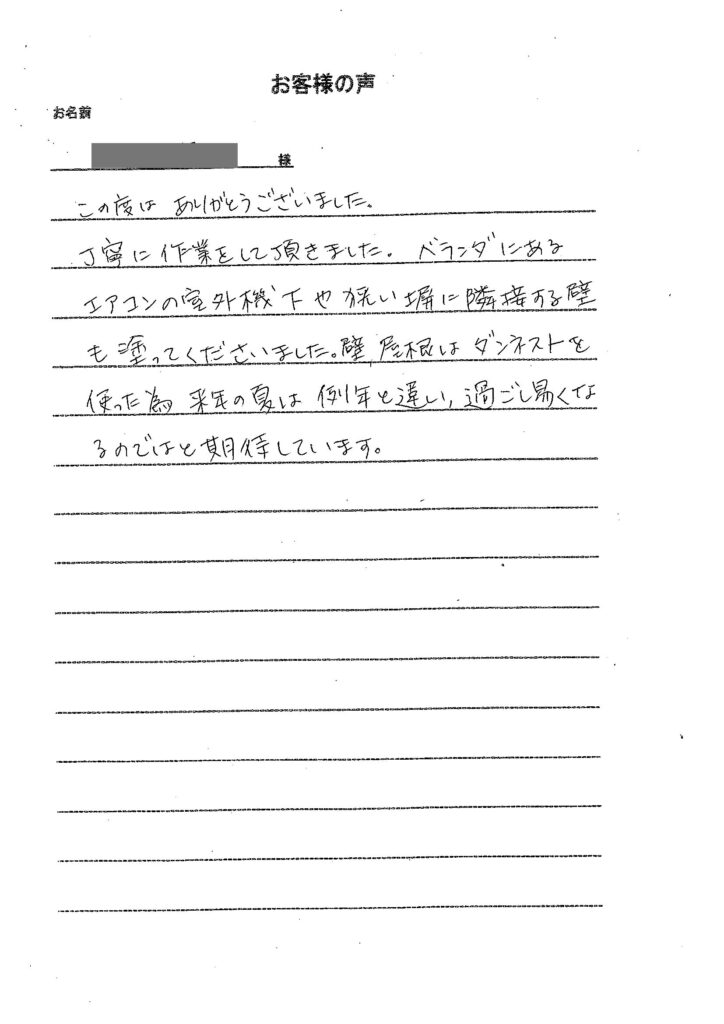 お客様の声
お名前
様
この度は ありがとうございました。
丁寧に作業をして頂きました。 ベランダにある
エアコンの室外機下や狭い塀に隣接する壁
も塗ってくださいました。壁、屋根はダンネストを
使った為 来年の夏は 例年と違い、過ごし易くな
るのではと期待しています。